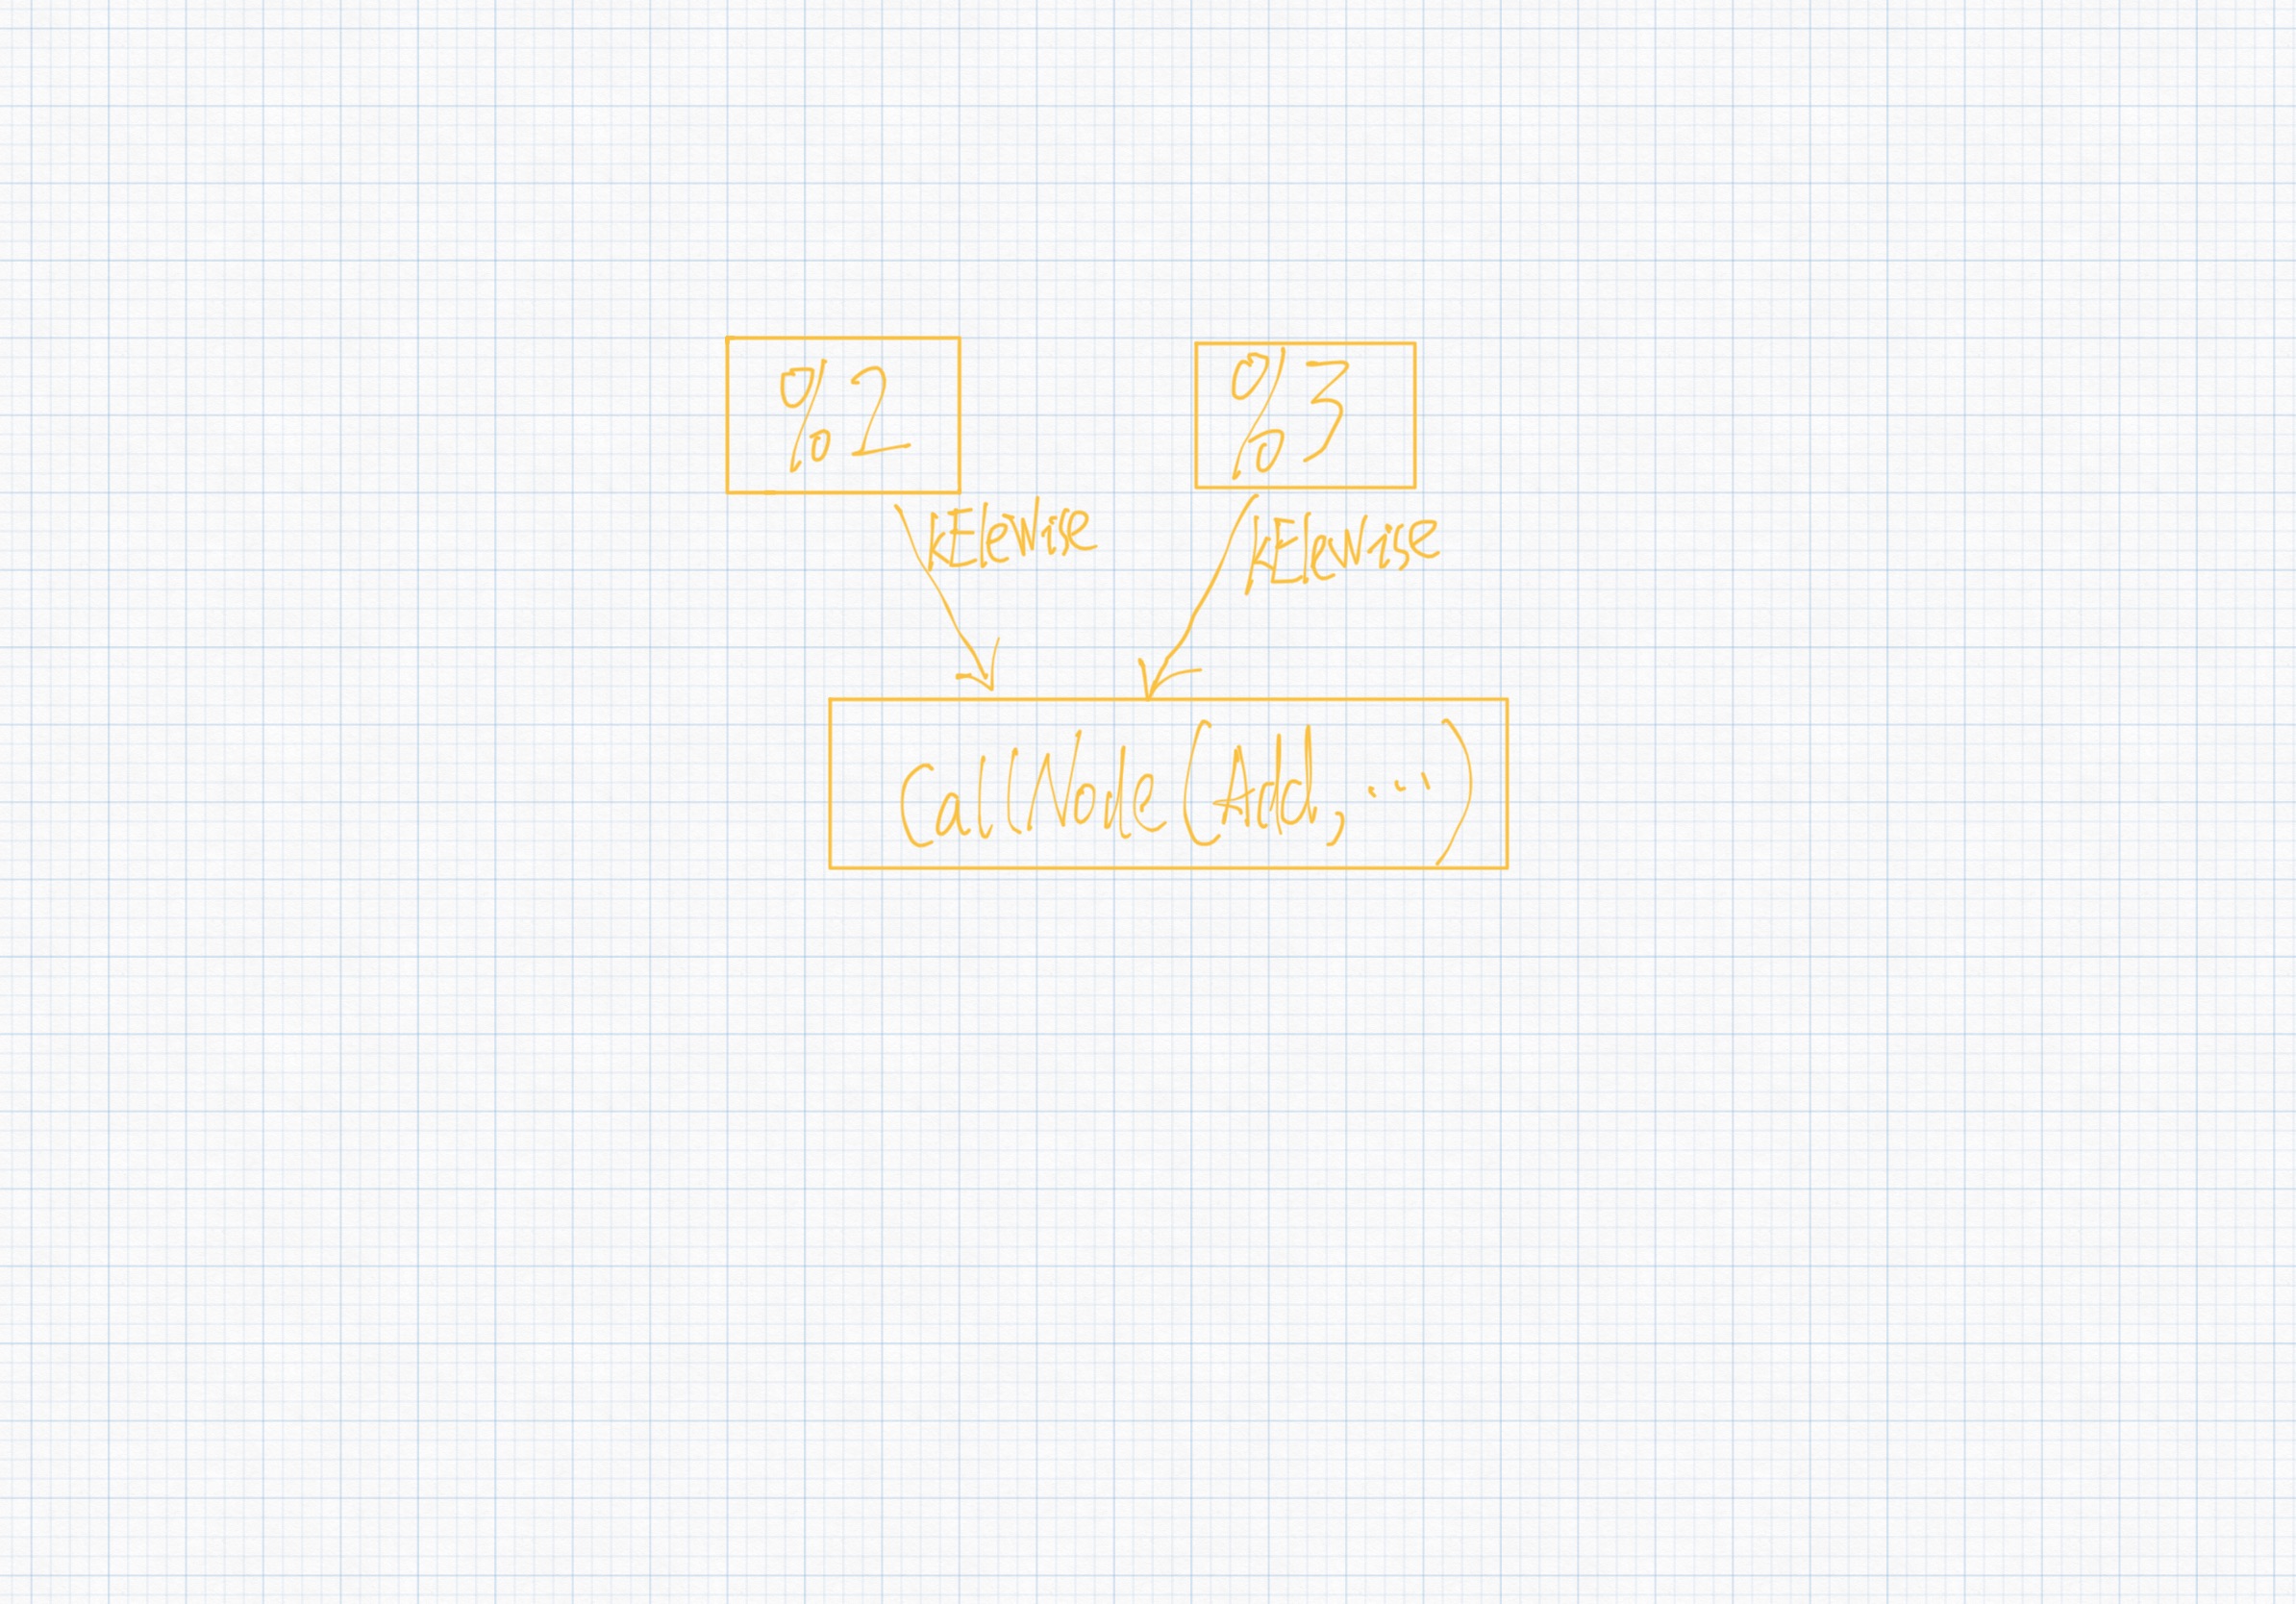 %2
%3
kEleWise
kEleWise
CallNode(Add, ...)